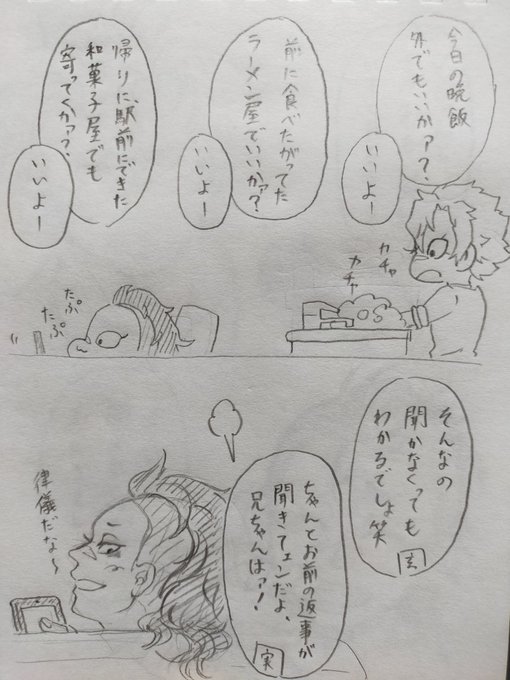 今日の晩飯
外でもいいかァ？
いいよー
前に食べたがってた
ラーメン屋でいいかァ？
いいよー
帰りに、駅前にできた
和菓子屋でも
寄ってくかァ？
いいよー
カチャ
カチャ
たぷ
たぷ
そんなの
聞かなくっても
わかるでしょ笑
玄
ちゃんとお前の返事が
聞きてェンだよ、
兄ちゃんはァ！
実
律儀だな〜